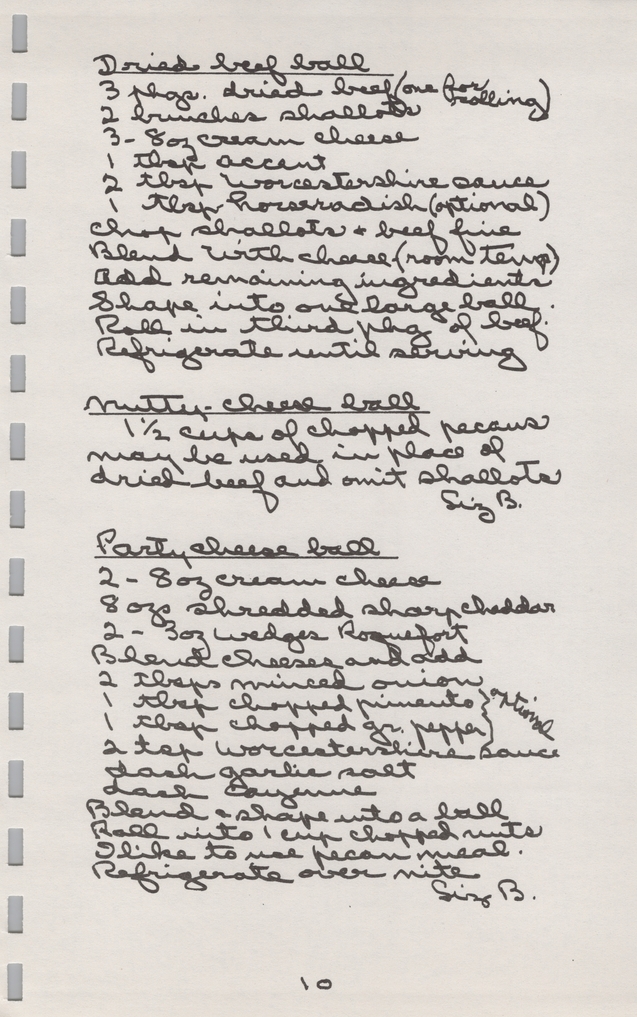 Dried beef ball
3 phgs. dried beef (one for rolling)
2 bunches shallots
3 - 8oz cream cheese
1 tbsp accent
2 tbsp Worcestershire sauce
1 tbsp horseradish (optional)
Chop shallots + beef fine
Blend with cheese (room temp)
Add remaining ingredients
Shape into one large ball.
Roll in third phg of beef.
Refrigerate until serving
Nutty-cheese ball
1 1/2 cups of chopped pecans
may be used in place of
dried beef and omit shallots
Liz B.
Party cheese ball
2 - 8oz cream cheese
8 ozs shredded sharp cheddar
2 - 3oz wedges Roquefort
Blend cheeses and add
2 tbsps minced onion
1 tbsp chopped pimento } optional
1 tbsp chopped gr. pepper
2 tsp Worcestershire sauce
dash garlic salt
dash Cayenne
Blend + shape into a ball
Roll into 1 cup chopped nuts
I like to use pecan meal.
Refrigerate over nite
Liz B.
10